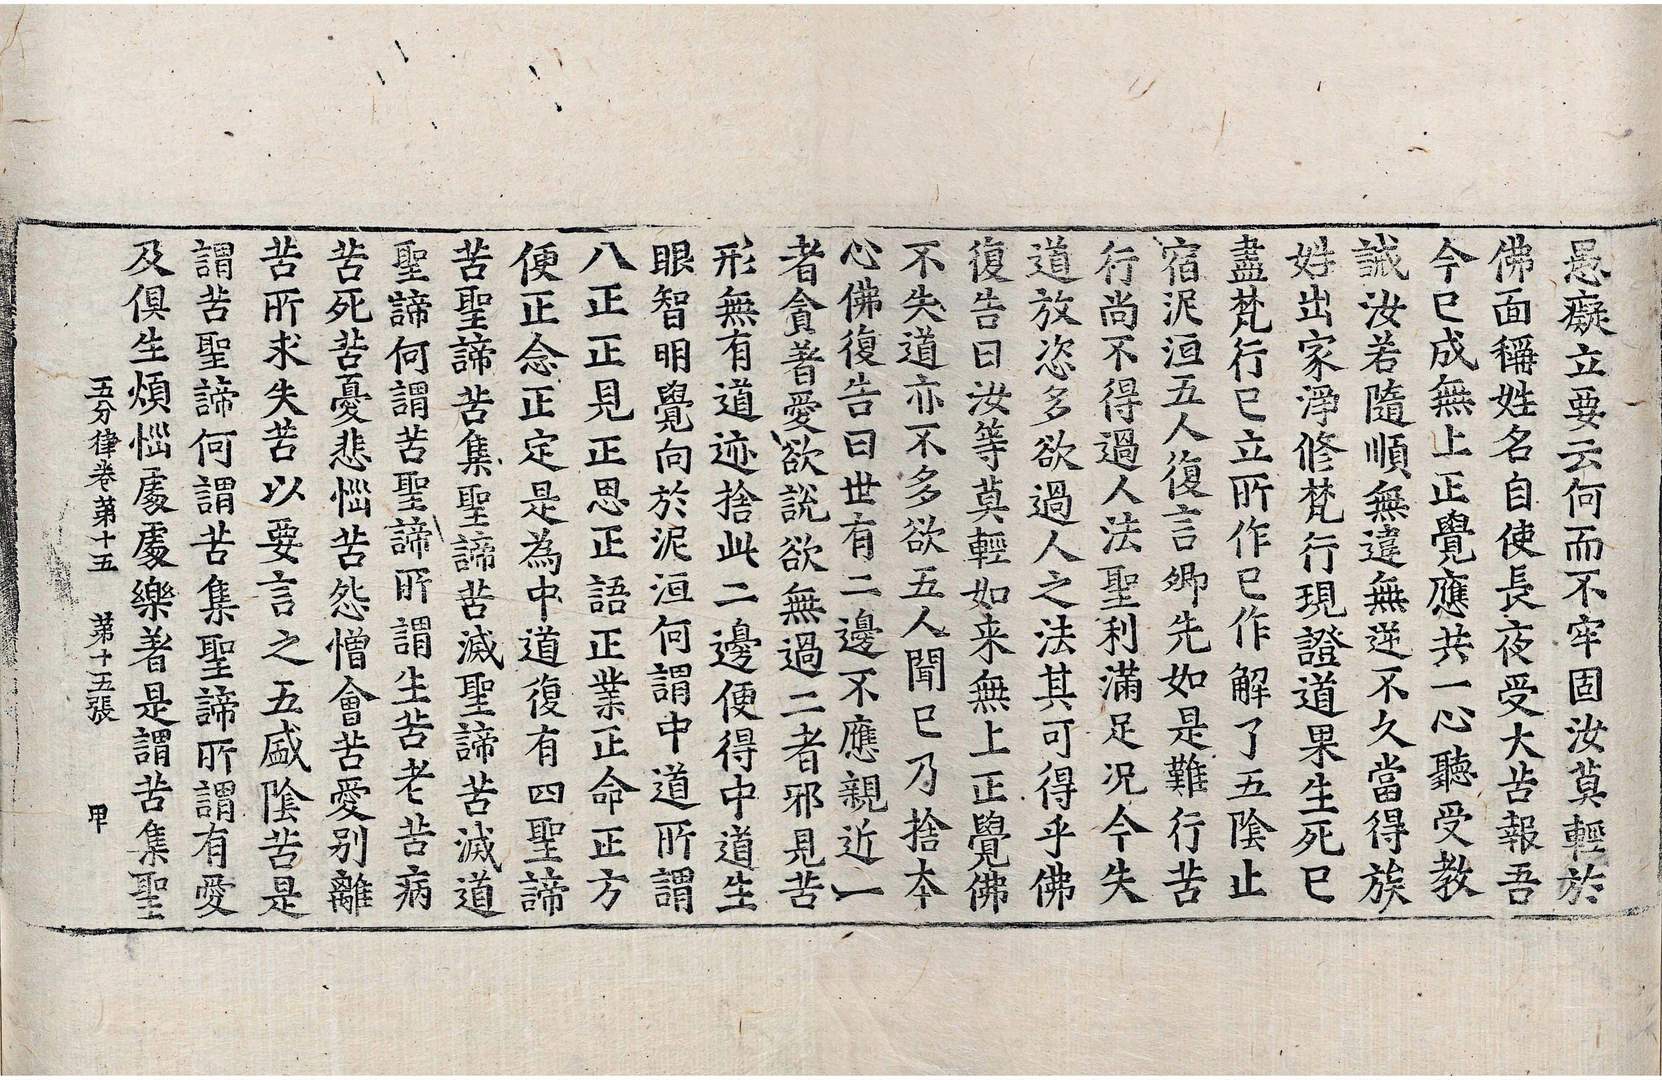 愚癡立要云何而不牢固汝莫輕於
佛面稱姓名自使長夜受大苦報吾
今已成無上正覺應共一心聽受教
誡汝若隨順無違無逆不久當得族
姓出家淨修梵行現證道果生死已
盡梵行已立所作已作解了五陰止
宿泥洹五人復言卿先如是難行苦
行尚不得過人法聖利滿足况今失
道放恣多欲過人之法其可得乎佛
復告曰汝等莫輕如来無上正覺佛
不失道亦不多欲五人聞已乃捨本
心佛復告曰世有二邊不應親近一
者貪著愛欲說欲無過二者邪見苦
形無有道迹捨此二邊便得中道生
眼智明覺向於泥洹何謂中道所謂
八正正見正思正語正業正命正方
便正念正定是為中道復有四聖諦
苦聖諦苦集聖諦苦滅聖諦苦滅道
聖諦何謂苦聖諦所謂生苦老苦病
苦死苦憂悲惱苦怨憎會苦愛别離
苦所求失苦以要言之五盛陰苦是
謂苦聖諦何謂苦集聖諦所謂有愛
及俱生煩惱處處樂著是謂苦集聖
五分律卷第十五 第十五張 甲